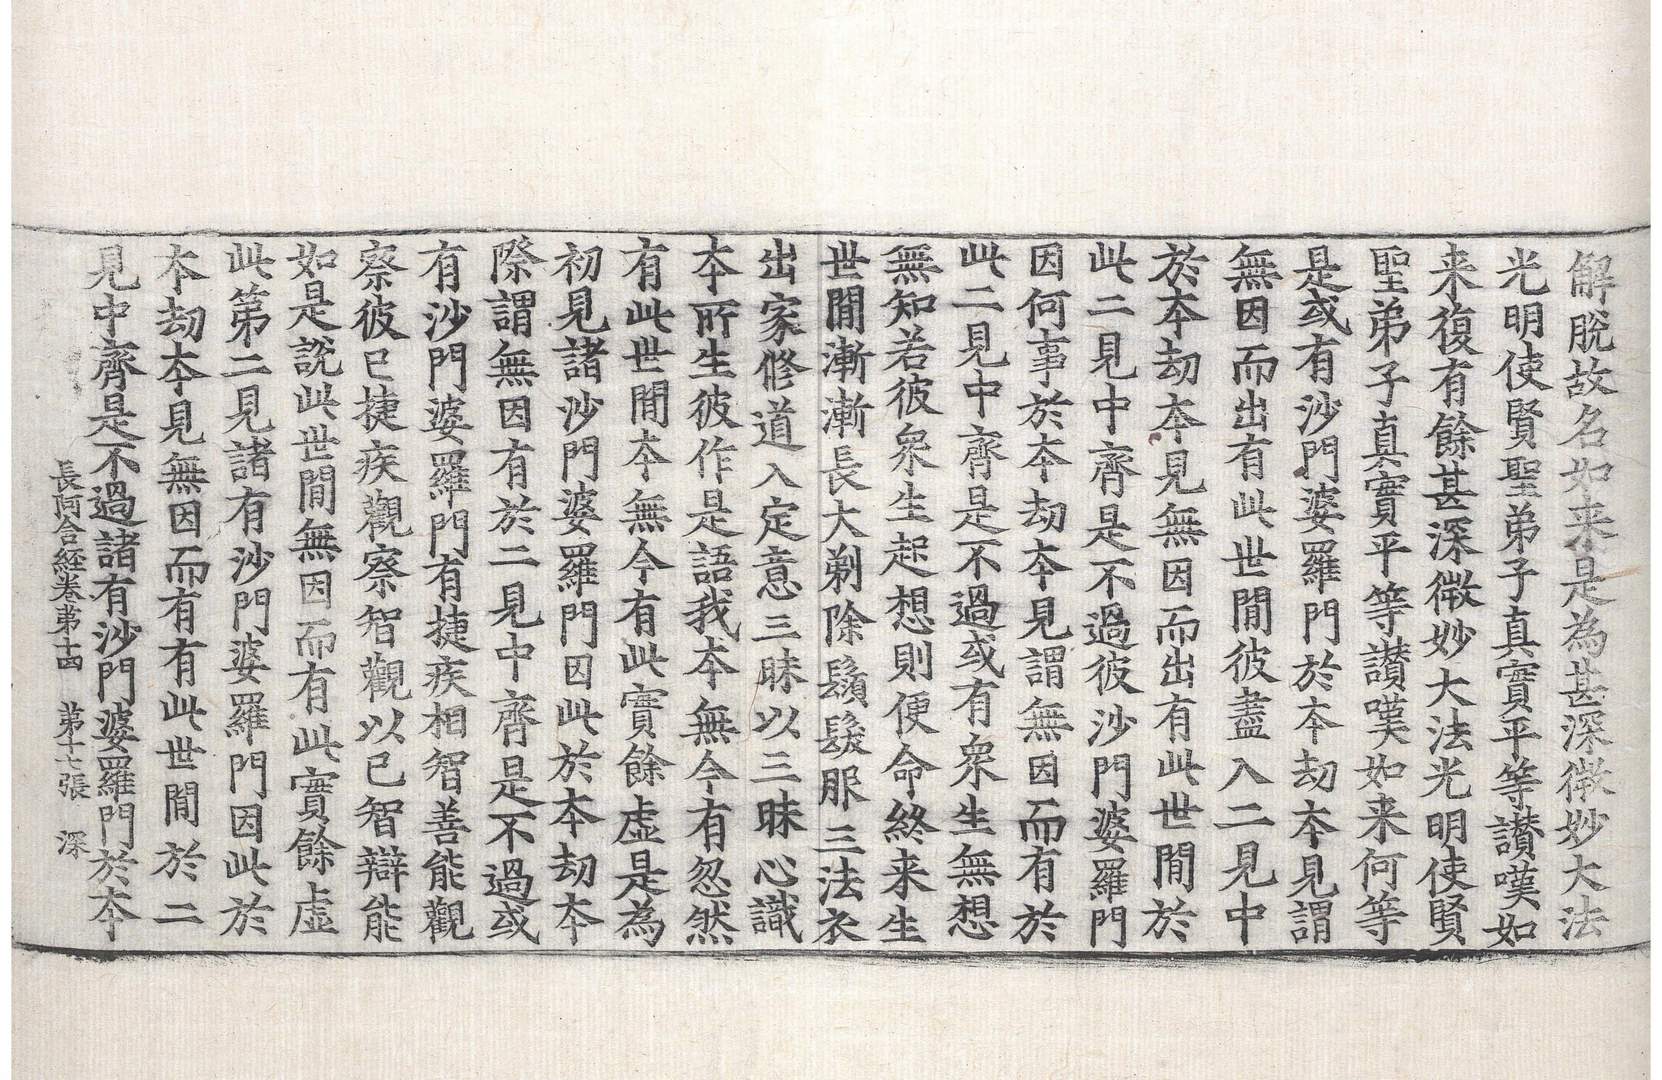 解脫故名如来是為甚深微妙大法
光明使賢聖弟子真實平等讃嘆如
来復有餘甚深微妙大法光明使賢
聖弟子真實平等讃嘆如来何等
是或有沙門婆羅門於夲劫夲見謂
無因而出有此世間彼盡入二見中
於夲劫夲見無因而出有此世間於
此二見中齊是不過彼沙門婆羅門
因何事於夲劫夲見謂無因而有於
此二見中齊是不過或有衆生無想
無知若彼衆生起想則便命終来生
世間漸漸長大剃除鬚髮服三法衣
出家修道入定意三昧以三昧心識
夲所生彼作是語我夲無今有忽然
有此世間夲無今有此實餘虛是為
初見諸沙門婆羅門因此於夲劫夲
際謂無因有於二見中齊是不過或
有沙門婆羅門有捷疾相智善能觀
察彼已捷疾觀察智觀以己智辯能
如是說此世間無因而有此實餘虛
此第二見諸有沙門婆羅門因此於
夲劫夲見無因而有有此世間於二
見中齊是不過諸有沙門婆羅門於夲
長阿含経卷第十四 第十七張 深